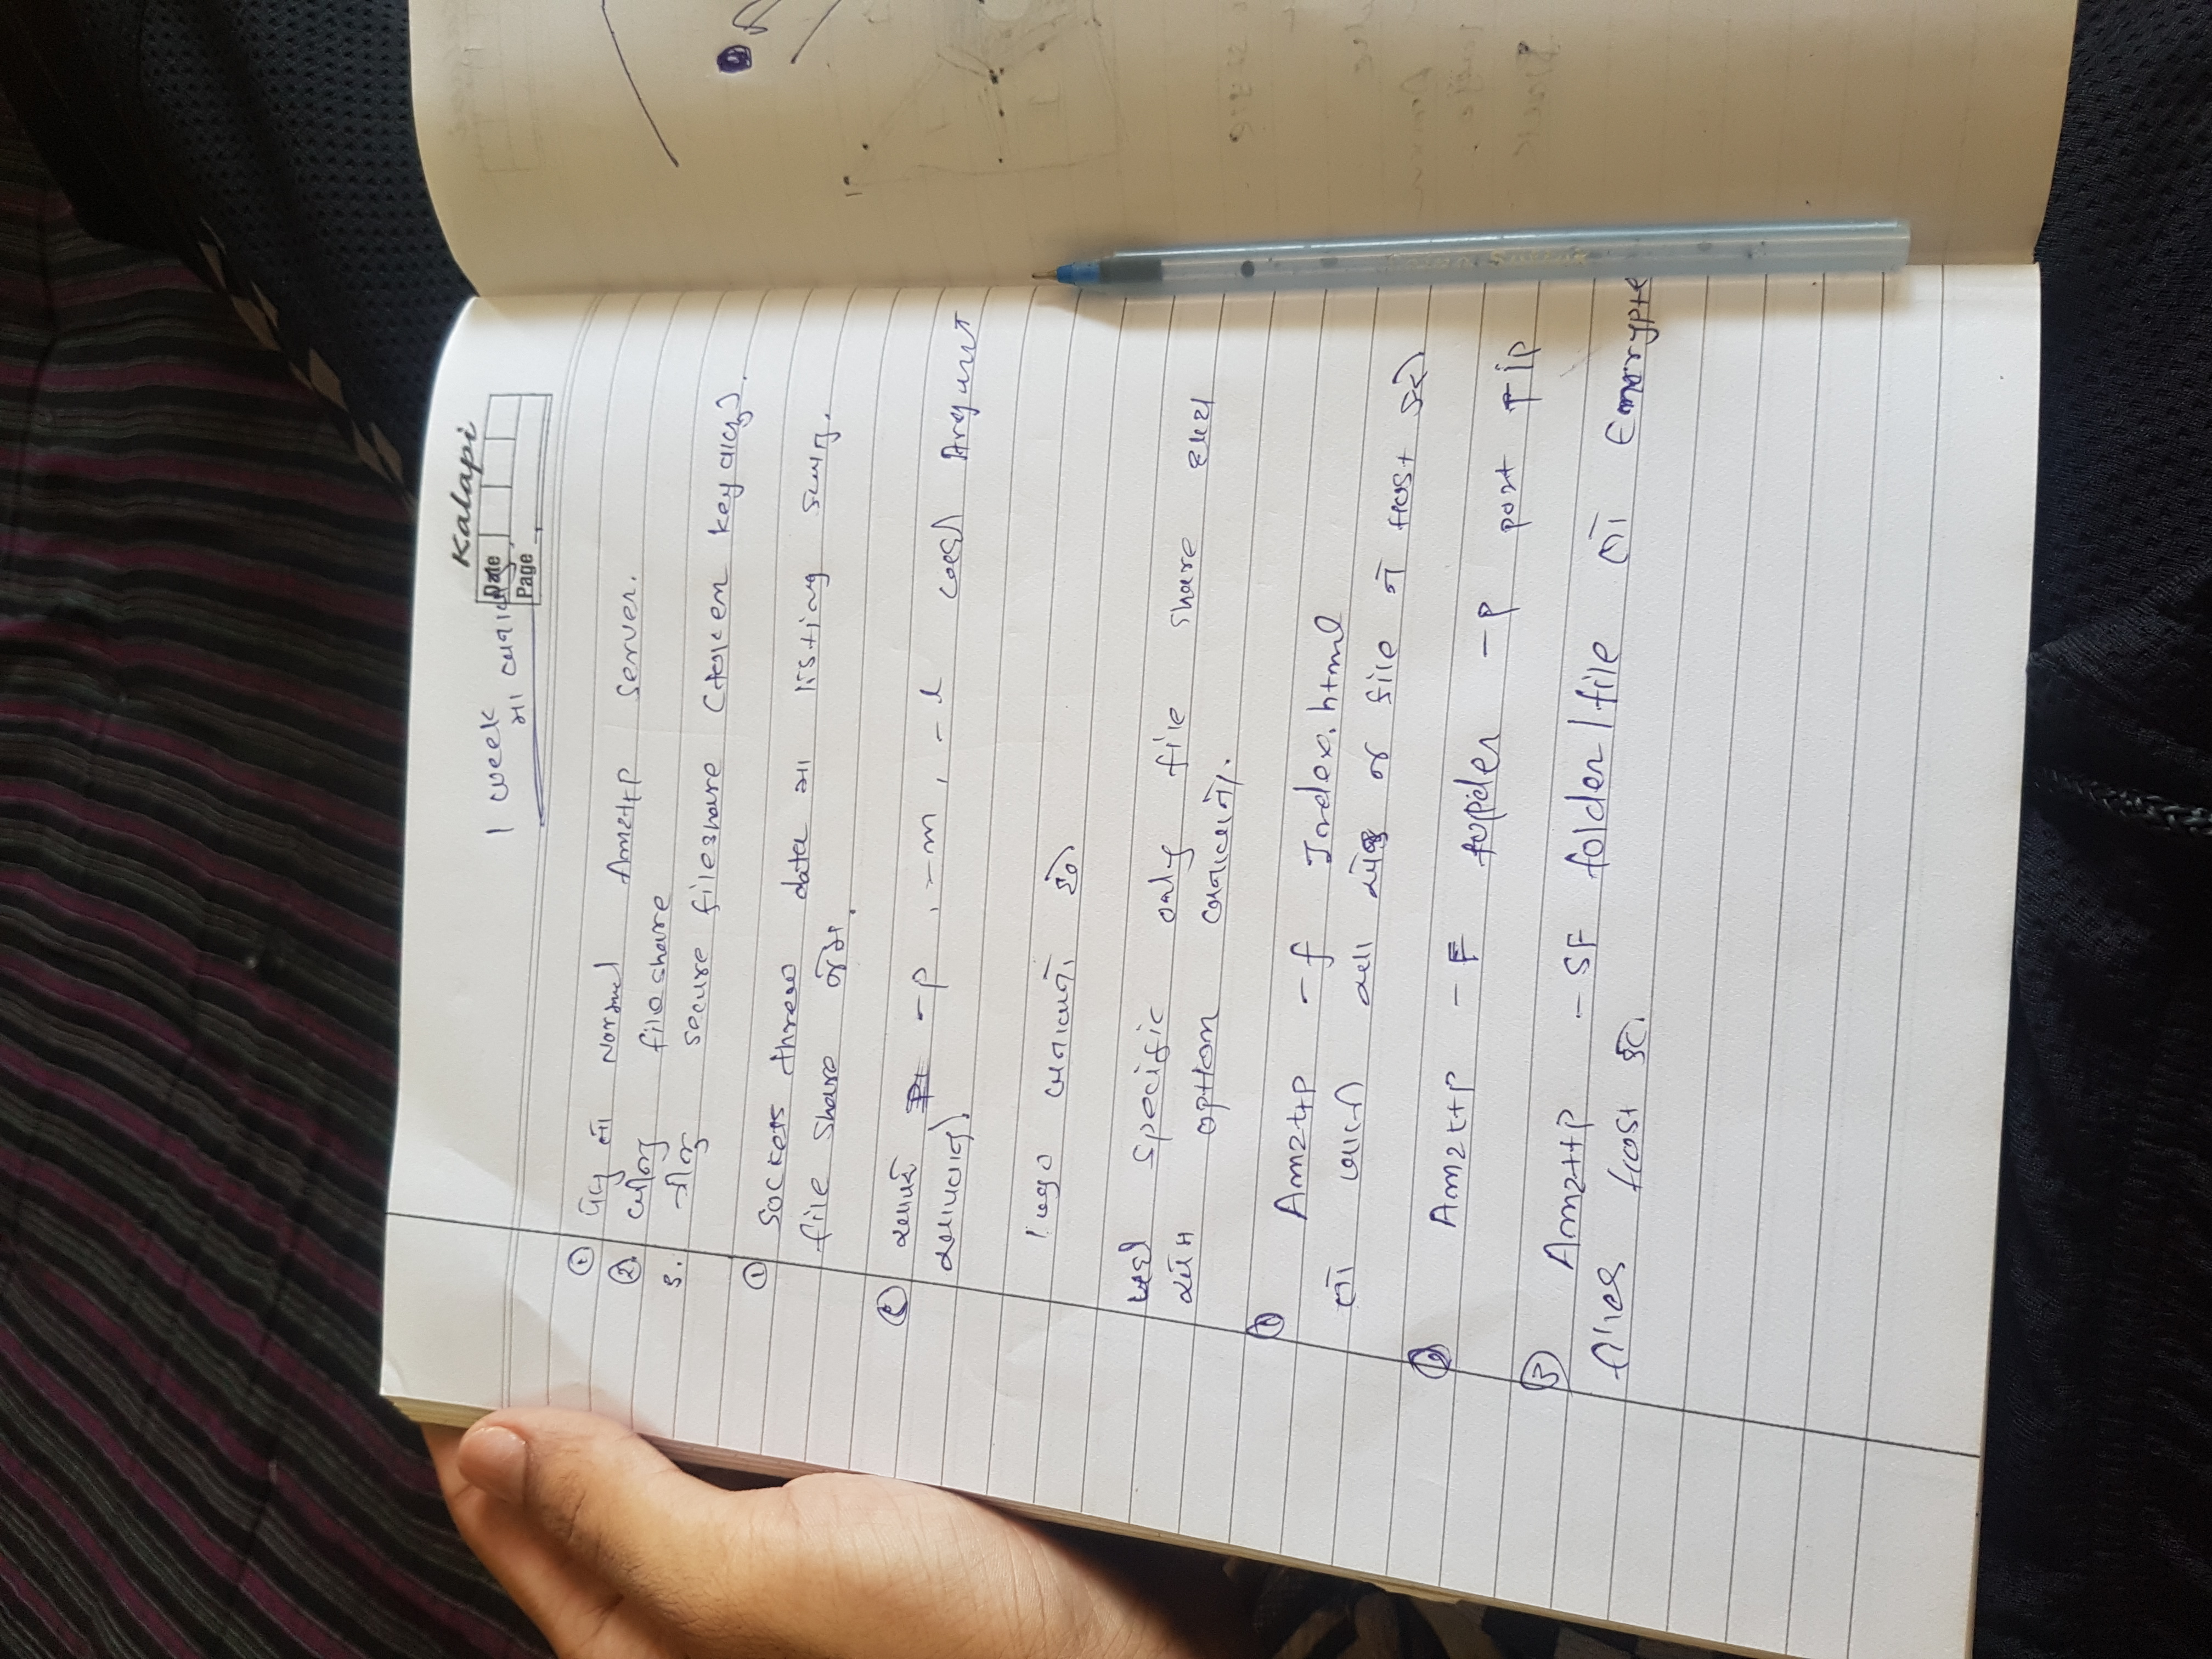 Kalapi
Date
Page
1 week
મા બનાવવું
① પેલુ તો Normal Amzttp server.
② બીજુ fileshare
3. ત્રીજુ secure fileshare (token key વાળુ).
① Sockets data મા listing કરવાનું.
file share જેમ.
-p , -m, -l Argument
આપવાનું.
logo બનાવવાનો હશે
specific only file share થાય
એમ option બનાવવાનો.
① Amzttp -f Index.html
તો ખાલી આ એક જ file ને Host કરશે
② Amzttp -F folder -p port + ip
③ Amzttp -SF folder/file તો Encrypte
files Host કરે.